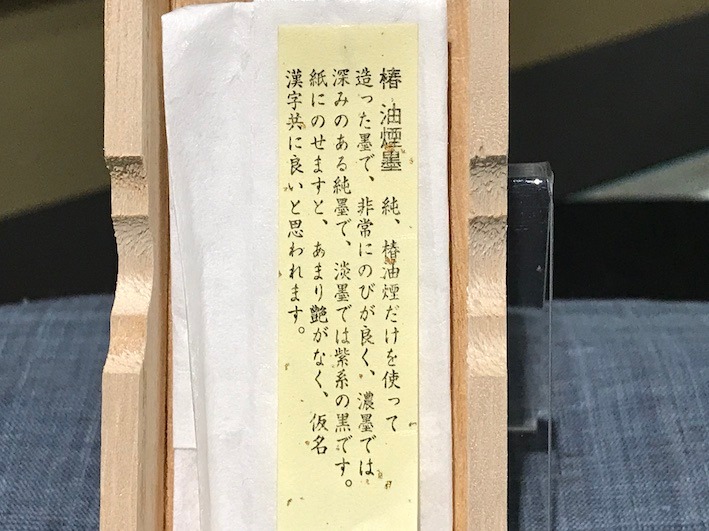 椿油煙墨 純、椿油煙だけを使って
造った墨で、非常にのびが良く、濃墨では
深みのある純墨で、淡墨では紫系の黒です。
紙にのせますと、あまり艶がなく、仮名
漢字共に良いと思われます。